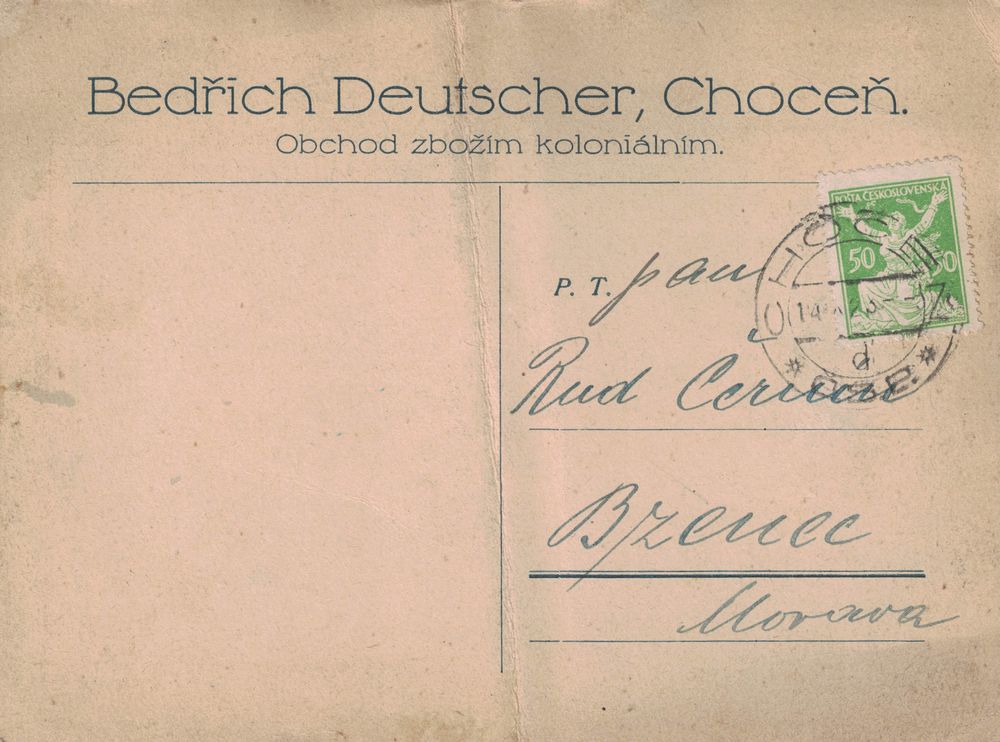 Bedřich Deutscher, Choceň.
Obchod zbožím koloniálním.
POŠTA ČESKOSLOVENSKÁ
50 50
P. T. pan
Rud Černý
Bzenec
Morava